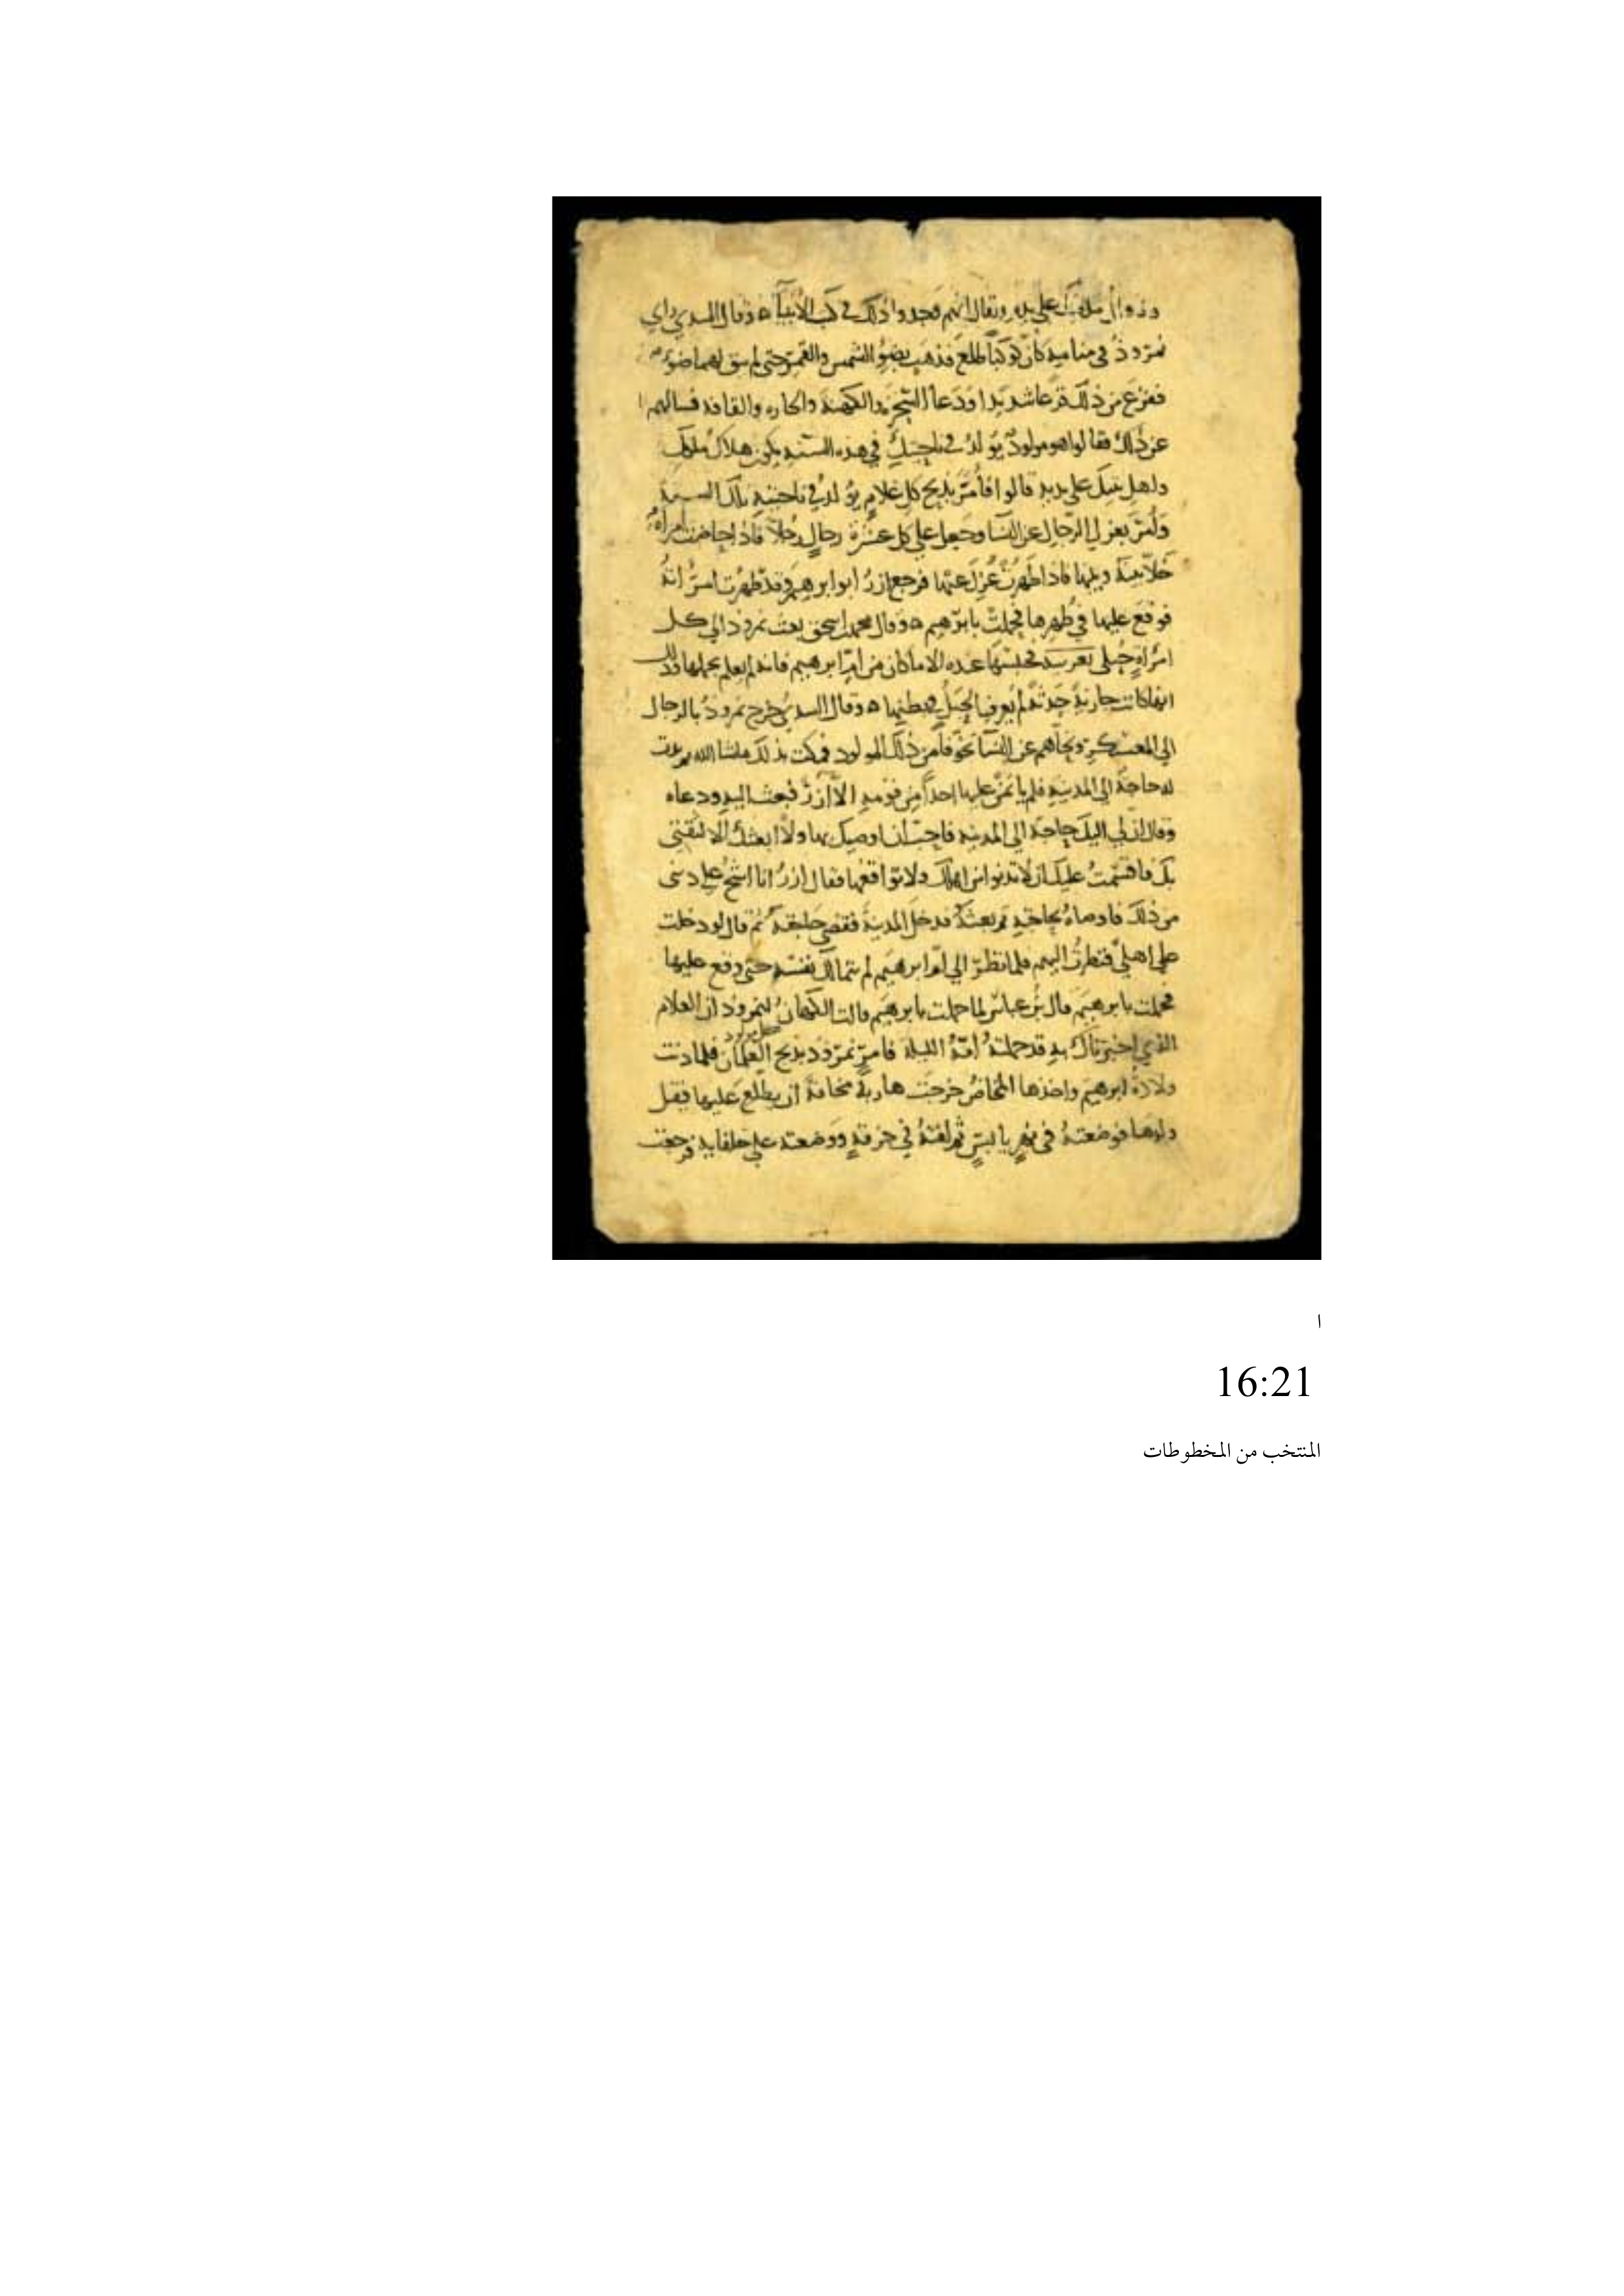 وزوال ملكك على يديه ويقال انهم وجدوا ذلك في كتب الأنبياء ه وقال السدي راي
نمروذ في منامه كان كوكبا طلع فذهب بضو الشمس والقمر حتى لم يبق لهما ضوء
ففزع من ذلك فزعا شديدا ودعا السحرة والكهنة والقافة فسالهم
عن ذلك فقالوا هو مولود يولد في ناحيتك في هذه السنة يكون هلاك ملكك
واهل بيتك على يديه قالوا فأمر بذبح كل غلام يولد في ناحيته تلك السنة
وأمر بعزل الرجال عن النسا وجعل على كل عشرة رجال رجلا فاذا حاضت امراة
خلا بينه وبينها فاذا طهرت عزل عنها فرجع ازر ابو ابرهيم وقد طهرت امراته
فوقع عليها في طهرها فحملت بابرهيم ه وقال محمد اسحق بعث نمروذ الي كل
امراة حبلى بقريته فحبسها عنده الا ما كان من ام ابرهيم فانه لم يعلم بحبلها وذلك
انها كانت جارية حدثة لم يعرف الحبل في بطنها ه وقال السدي خرج نمروذ بالرجال
الي المعسكر ونحاهم عن النسا تخوفا من ذلك المولود فمكث بذلك ما شا الله ثم بدت
له حاجة الى المدينة فلم يأتمن عليها احدا من قومه الا آزر فبعث اليه ودعاه
وقال ان لي اليك حاجة الي المدينة فاحببت ان اوصيك بها ولا ابعثك الا لثقتي
بك فاقسمت عليك ان لا تدنوا من اهلك ولا تواقعها فقال ازر انا اشح على ديني
من ذلك فاوصاه بحاجته ثم بعثه فدخل المدينة فقضى حاجته ثم قال لو دخلت
على اهلي فنظرت اليهم فلما نظر الي ام ابرهيم لم يتمالك نفسه حتى وقع عليها
فحملت بابرهيم قال بن عباس لما حملت بابرهيم قالت الكهان لنمروذ ان الغلام
الذي اخبرناك به قد حملته امه الليلة فامر نمروذ بذبح الغلمان فلما دنت
ولادة ابرهيم واخذها المخاض خرجت هاربة مخافة ان يطلع عليها فيقتل
ولدها فوضعته في نهر يابس ثم لفته في خرقة ووضعته في حلفاية فرجعت
ا
16:21
المنتخب من المخطوطات